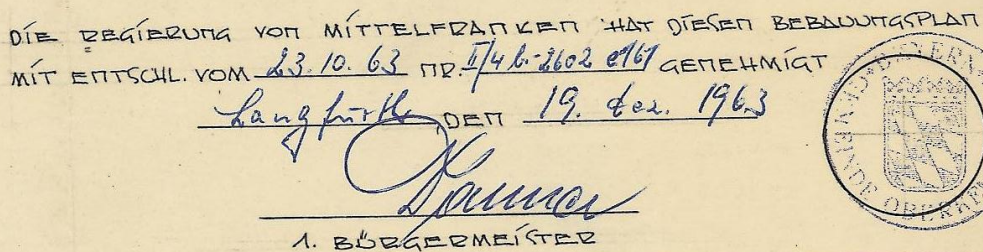 DIE REGIERUNG VON MITTELFRANKEN HAT DIESEN BEBAUUNGSPLAN
MIT ENTSCHL. VOM 23.10.63 NR. II/4b-2602 e161 GENEHMIGT
Langfurth DEN 19. Dez. 1963
1. BÜRGERMEISTER
BAYERN
GEMEINDE OBERKEM